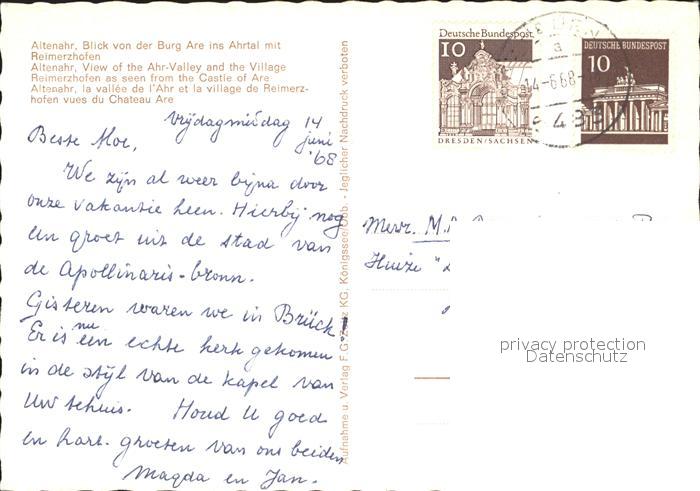 Altenahr, Blick von der Burg Are ins Ahrtal mit
Reimerzhofen
Altenahr, View of the Ahr-Valley and the Village
Reimerzhofen as seen from the Castle of Are
Altenahr, la vallée de l'Ahr et la village de Reimerz-
hofen vues du Chateau Are
Vrijdagmiddag 14
juni
'68
Beste Moe,
We zijn al weer bijna door
onze vakantie heen. Hierbij nog
een groet uit de stad van
de Apollinaris-bronn.
Gisteren waren we in Brück!
Er is nu een echte kerk gekomen
in de stijl van de kapel van
Uw tehuis. Houd U goed
en hart. groeten van ons beiden
Magda en Jan.
Aufnahme u. Verlag F. G. KG, Königssee/Obb. - Jeglicher Nachdruck verboten
Deutsche Bundespost
10
DRESDEN/SACHSEN
14-6.68-
a
483
DEUTSCHE BUNDESPOST
10
Mevr. M.
Huize "
privacy protection
Datenschutz